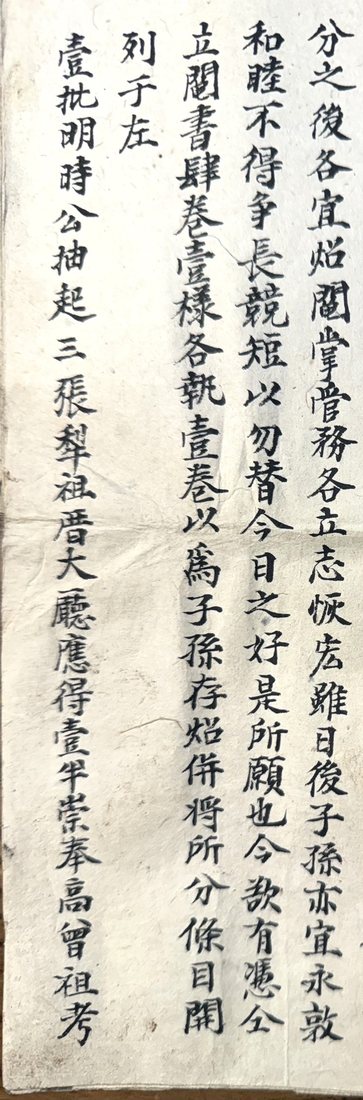 分之後各宜炤鬮掌管務各立志恢宏雖日後子孫亦宜永敦
和睦不得争長競短以勿替今日之好是所願也今欲有憑仝
立鬮書肆卷壹樣各執壹卷以為子孫存炤併将所分條目開
列于左
壹批明時公抽起三張犁祖厝大廳應得壹半崇奉高曾祖考